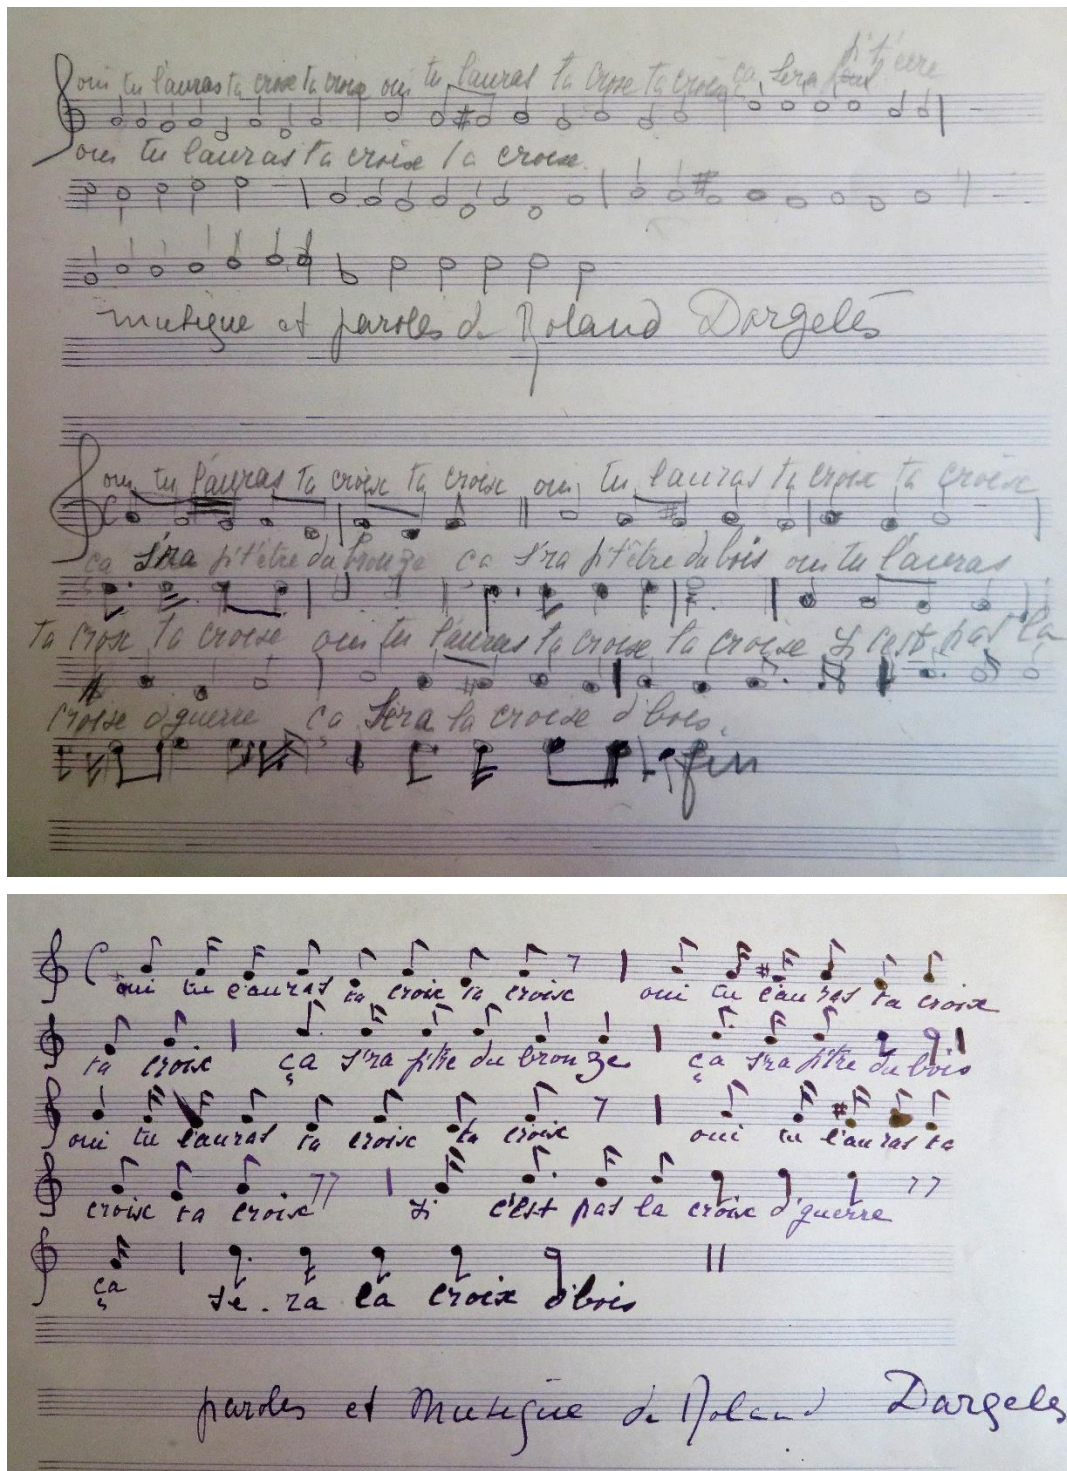 oui tu l'auras ta croix ta croix oui tu l'auras ta croix ta croix ça sera
p't'être
oui tu l'auras ta croix ta croix
musique et paroles de Roland Dorgelès
oui tu l'auras ta croix ta croix oui tu l'auras ta croix ta croix
ça s'ra p't'être du bronze ça s'ra p't'être du bois oui tu l'auras
ta croix ta croix oui tu l'auras ta croix ta croix si c'est pas la
croix d'guerre ça sera la croix d'bois.
fin
oui tu l'auras ta croix ta croix oui tu l'auras ta croix
ta croix ça s'ra p't'tre du bronze ça s'ra p't'tre du bois
oui tu l'auras ta croix ta croix oui tu l'auras ta
croix ta croix si c'est pas la croix d'guerre
ça se.ra la croix d'bois
paroles et musique de Roland Dorgelès